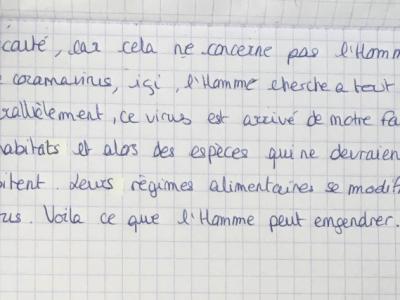 cauté, car cela ne concerne pas l'Homm
coramavirus, içi, l'Homme cherche a tout
rallèlement, ce virus est arrivé de motre fa
habitats et alors des espèces qui ne devraien
bitent. Leurs régimes alimentaires se modif
us. Voila ce que l'Homme peut emgendrer.